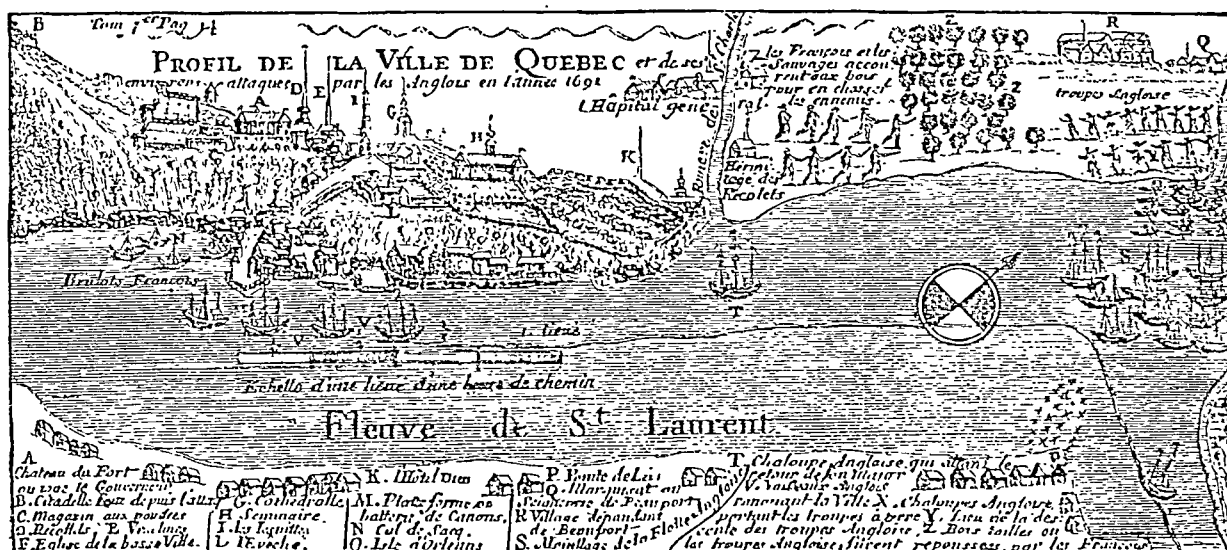 B
Tom 1er Pag
PROFIL DE LA VILLE DE QUEBEC et de ses
environs attaquée par les Anglois en l'année 1691
A
D
E
I
G
H
K
l'Hôpital general.
Z les François et les
Sauvages accou
rent aux bois
pour en chasser
les ennemis.
Z
Z
R
Q
troupes Angloise
Hermi
tage des
Recolets
Riviere de
Brulots François
V
T
S
1. lieue
Echelle d'une lieue d'une heure de chemin
Fleuve de St. Laurent
A
Chateau du Fort
ou
B. Citadelle
C. Magasin aux poudres
D. Recolets E. Ursulines
F. Eglise de la basse Ville.
H Seminaire.
I. Les Jesuites
L l'Evêché.
K. l'Hôtel Dieu
M. Plate forme ou
batterie de Canons.
N Cul de Sacq.
O. Isle d'Orleans
P. Pointe de Levi
Seigneurie de Beauport
R Village dependant
de Beauport
S. Mouillage de la Flotte Angloise
T. Chaloupe Angloise qui
V. Vaisseaux Anglois
canonant la Ville X. Chaloupes Angloise
portant les troupes à terre Y. Lieu de la des
cente des troupes Angloise. Z Bois taillés ou
les troupes Angloises furent repoussés par les François